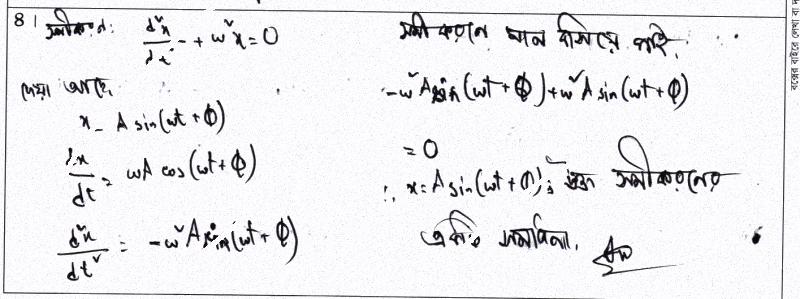 8| সমীকরণ: d²x/dt² + ω²x = 0
দেয়া আছে
x = A sin(ωt + Φ)
dx/dt = ωA cos(ωt + Φ)
d²x/dt² = -ω²A sin(ωt + Φ)
সমীকরণে মান বসিয়ে পাই,
-ω²A sin(ωt + Φ) + ω²A sin(ωt + Φ)
= 0
∴ x = A sin(ωt + Φ), সমীকরণের
একটি সমাধান।
বক্সের বাইরে লেখা বা